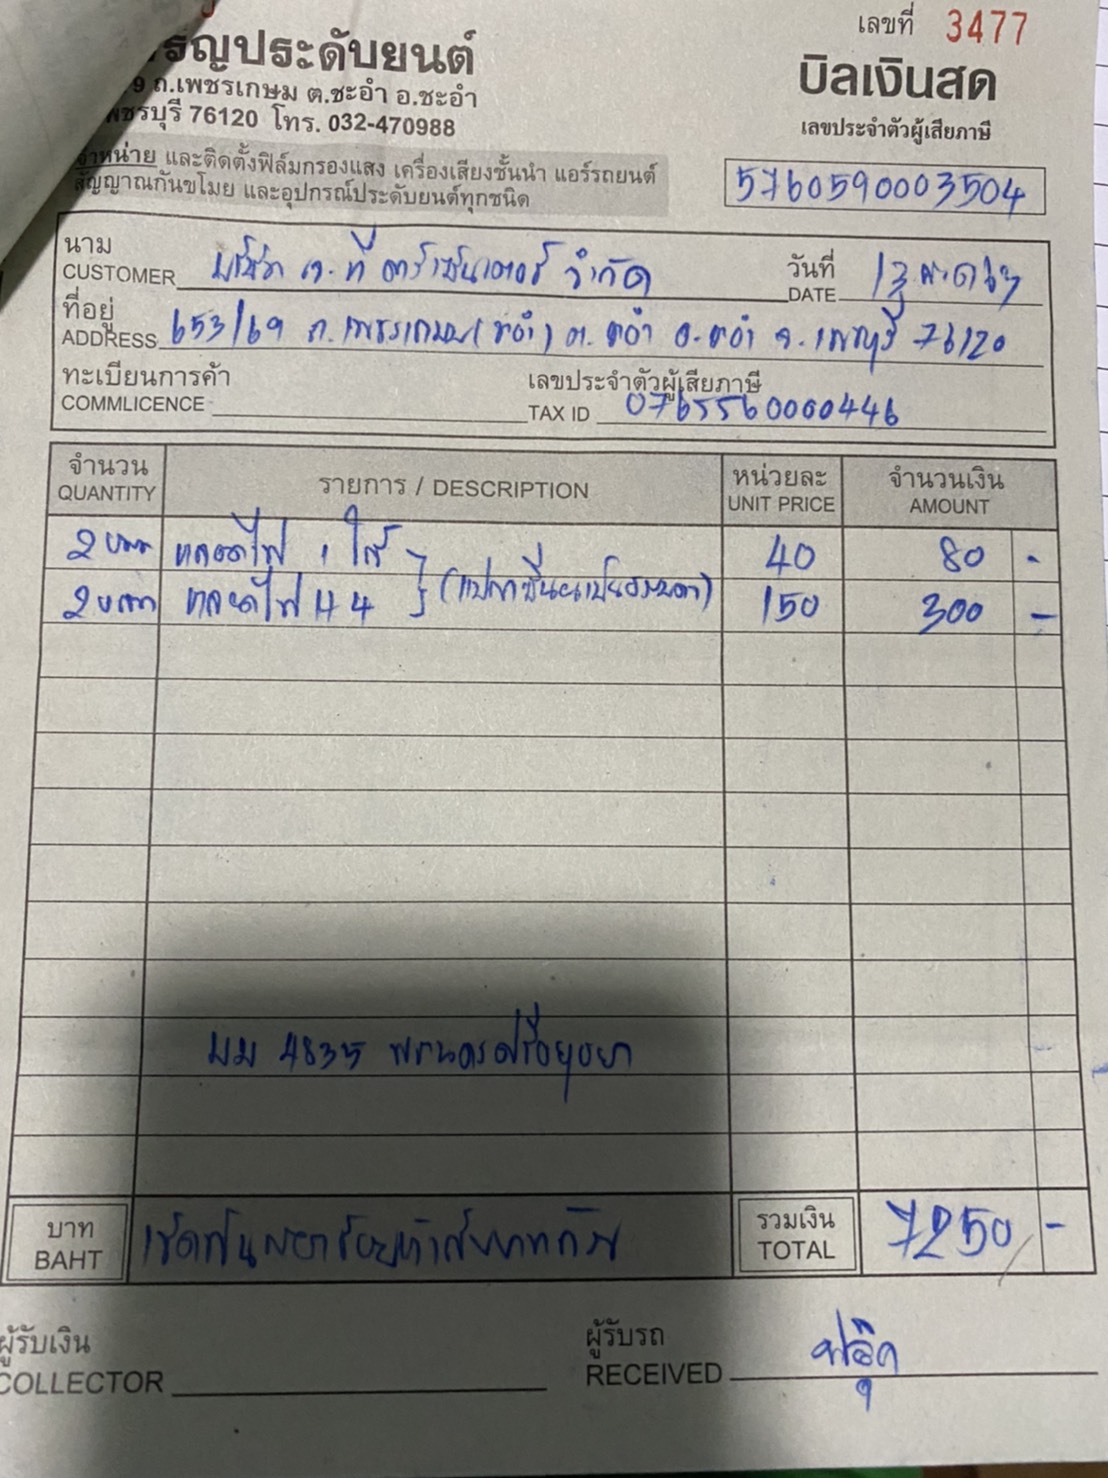 เลขที่ 3477
ริญประดับยนต์
9 ถ.เพชรเกษม ต.ชะอำ อ.ชะอำ
พชรบุรี 76120 โทร. 032-470988
บิลเงินสด
เลขประจำตัวผู้เสียภาษี
5760590003504
จำหน่าย และติดตั้งฟิล์มกรองแสง เครื่องเสียงชั้นนำ แอร์รถยนต์
สัญญาณกันขโมย และอุปกรณ์ประดับยนต์ทุกชนิด
นาม
CUSTOMER บริษัท เจ.ที จำกัด
วันที่
DATE 13
ที่อยู่
ADDRESS 653/69 ถ.เพชรเกษม (ชะอำ) ต.ชะอำ อ.ชะอำ จ.เพชรบุรี 76120
ทะเบียนการค้า
COMMLICENCE
เลขประจำตัวผู้เสียภาษี
TAX ID 0765560000446
จำนวน รายการ / DESCRIPTION หน่วยละ จำนวนเงิน
QUANTITY UNIT PRICE AMOUNT
2 หลอดไฟ 1 ไส้ 40 80 -
2 หลอดไฟ H4 150 300 -
มม 4835 พระนครศรีอยุธยา
บาท
BAHT
เจ็ดพันสองร้อยห้าสิบบาทถ้วน
รวมเงิน
TOTAL
7250 -
ผู้รับเงิน
COLLECTOR
ผู้รับรถ
RECEIVED